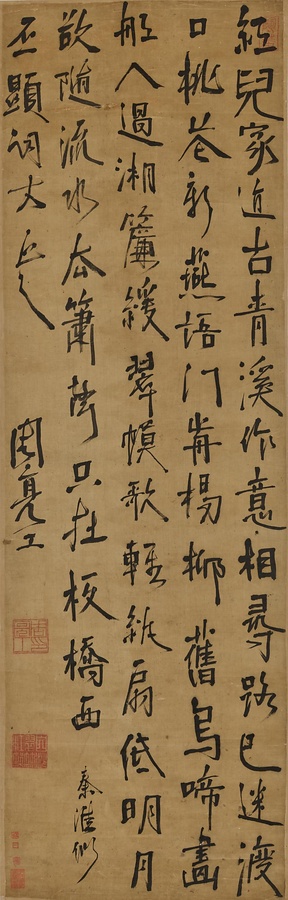 紅兒家近古青溪作意相尋路已迷渡
口桃花新燕語門前楊柳舊烏啼畫
船人過湘簾緩翠幙歌輕紈扇低明月
欲隨流水去簫聲只在板橋西 秦淮似
丕顯詞丈正之 周亮工